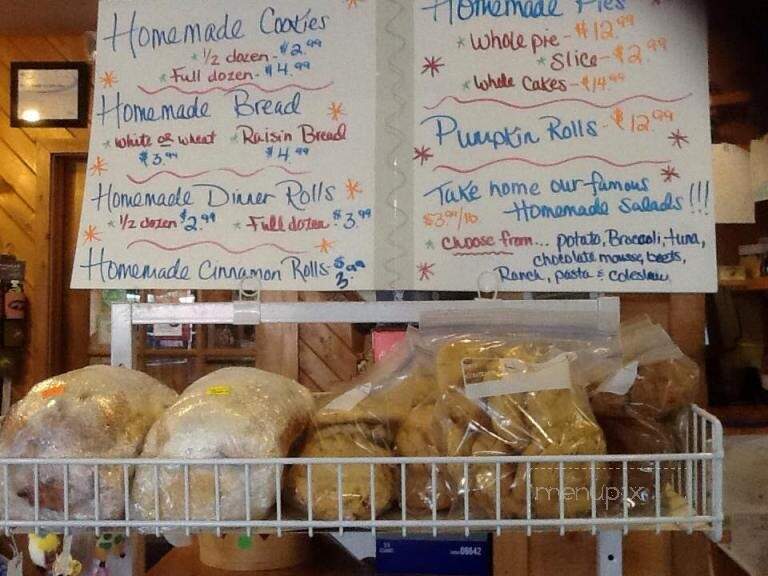 Homemade Cookies
* 1/2 dozen - $2.99
* Full dozen - $4.99
Homemade Bread
* white or wheat * Raisin Bread
$3.99 $4.99
Homemade Dinner Rolls
* 1/2 dozen $2.99 * Full dozen - $3.99
Homemade Cinnamon Rolls - $3.99
Homemade Pies
* Whole pie - $12.99
* Slice - $2.99
* Whole Cakes - $14.99
Pumpkin Rolls - $12.99
Take home our famous
$3.99/lb Homemade Salads!!!
* Choose from... potato, Broccoli, tuna,
chocolate mousse, beets,
Ranch, pasta & coleslaw
menupix
06642